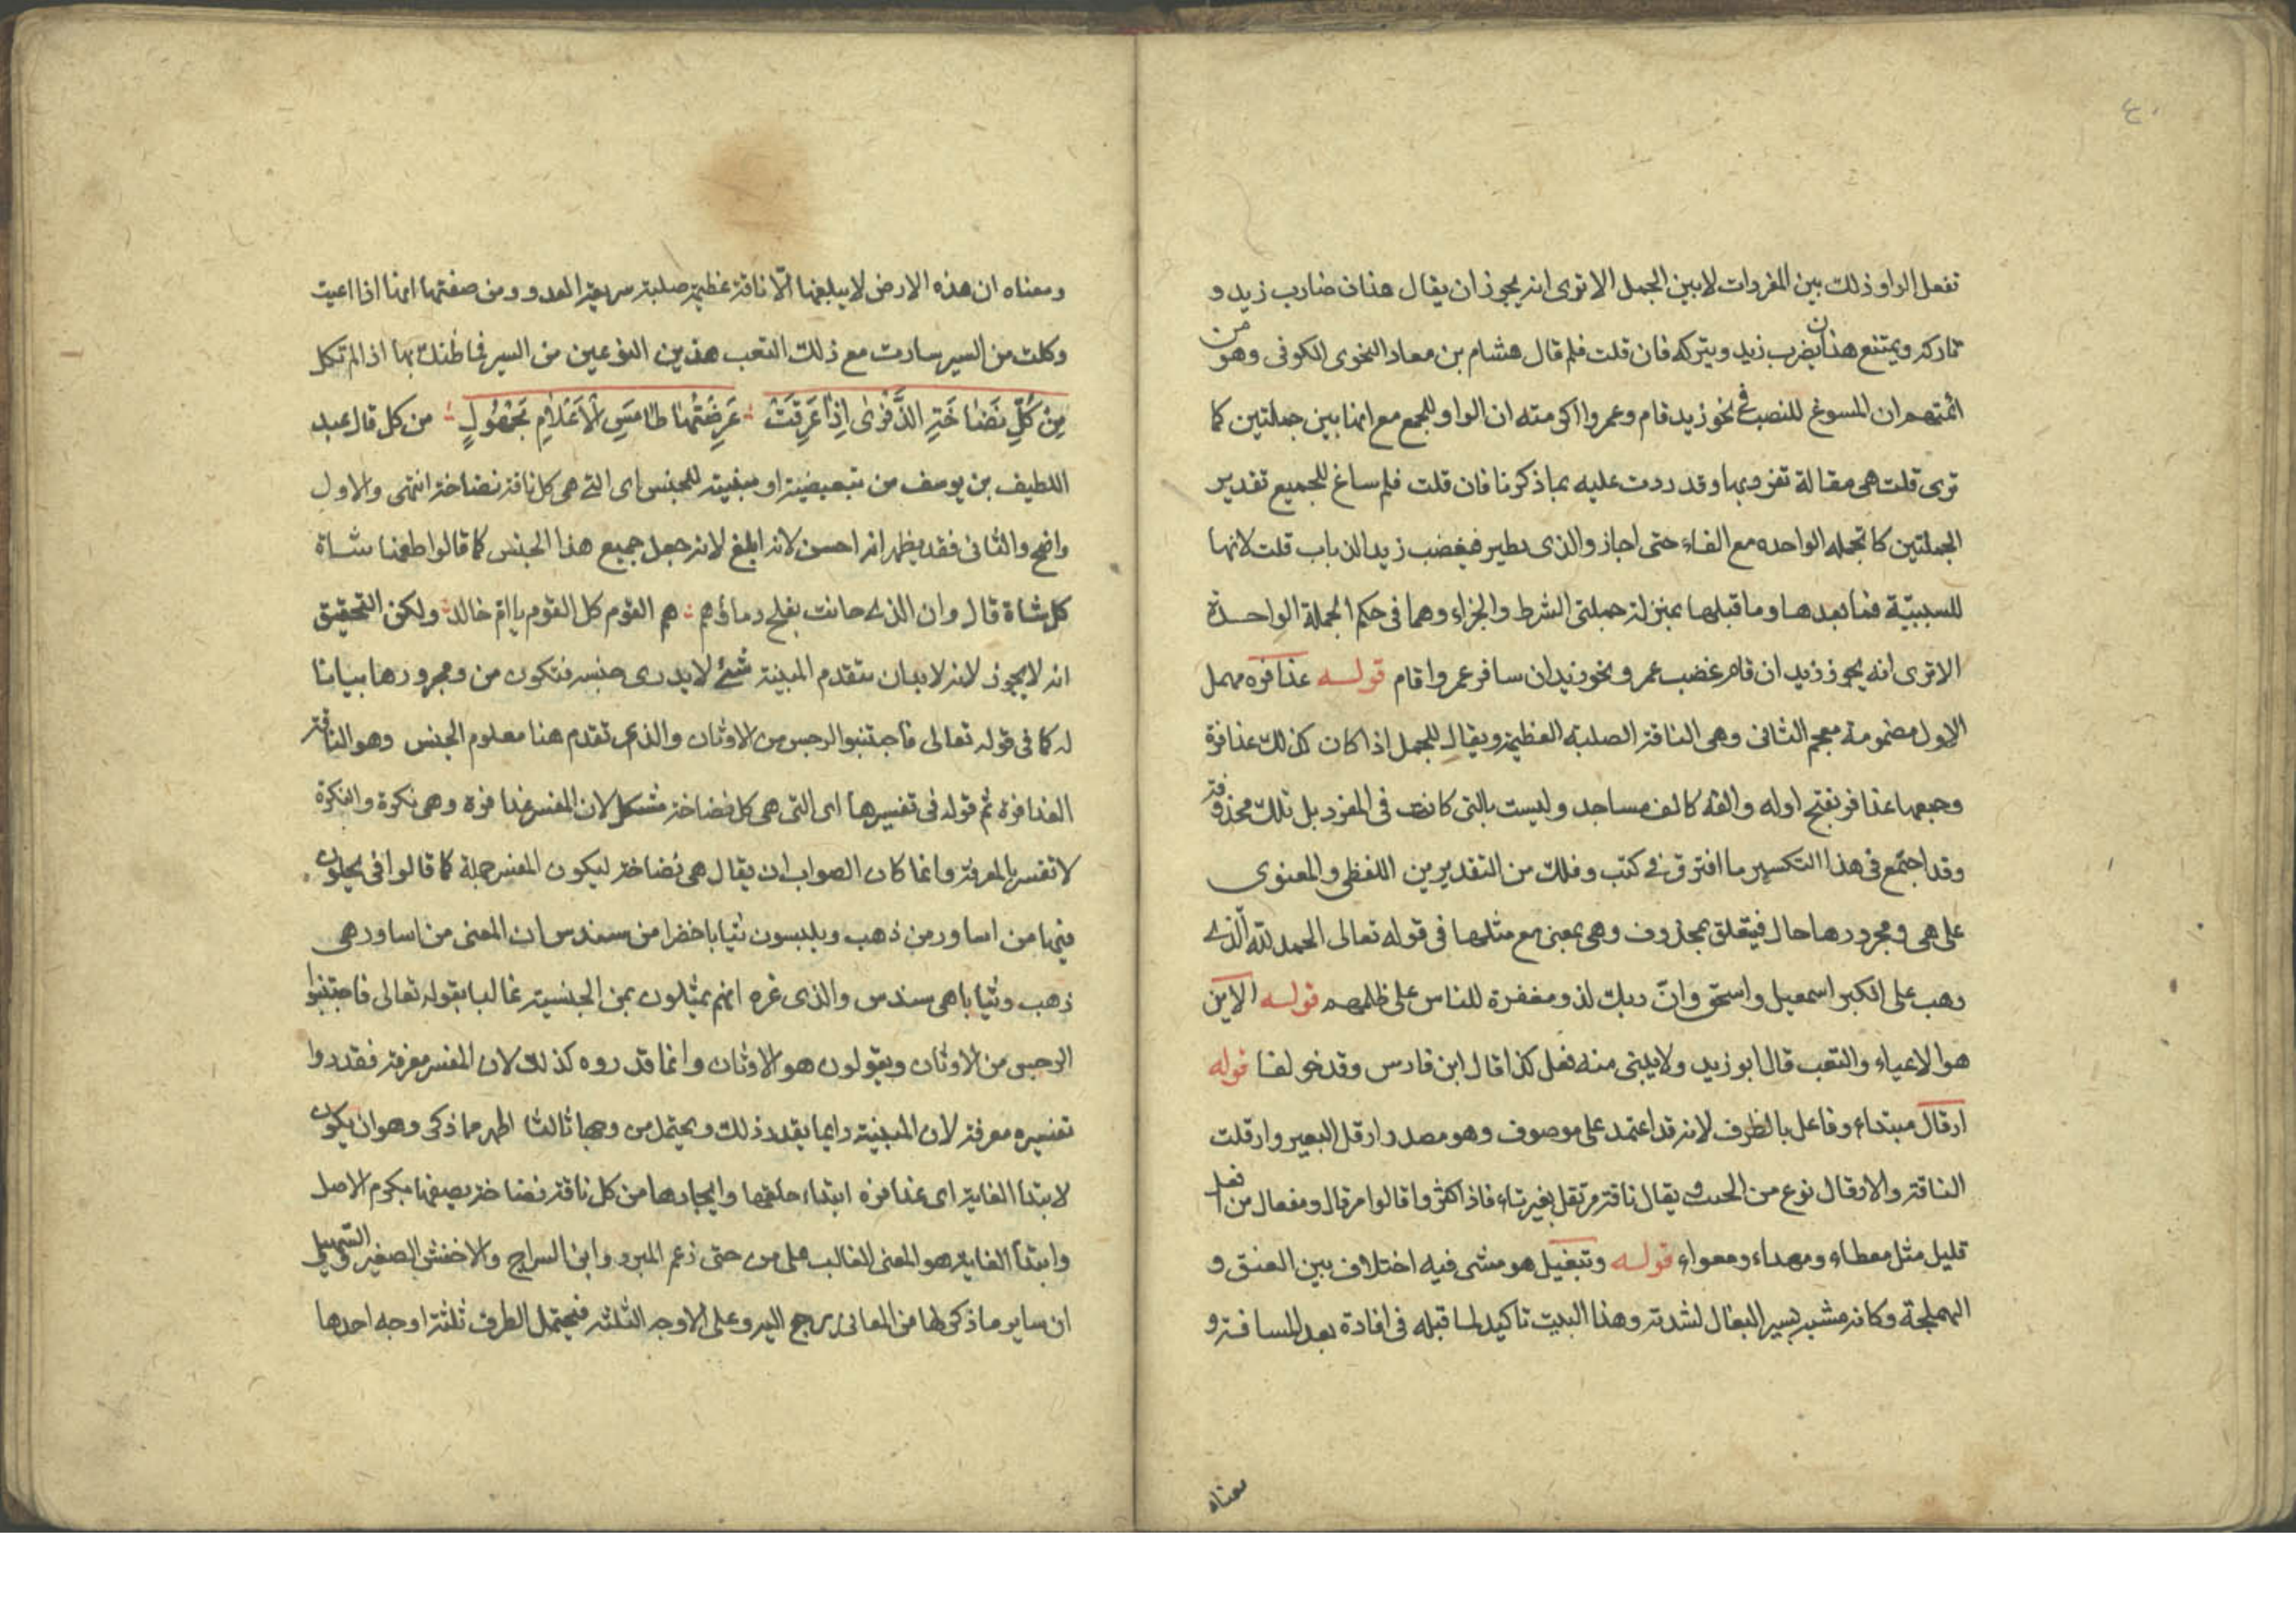 ٤٠
تفعل الواو ذلك بين المفردات لا بين الجمل الا ترى انه يجوز ان يقال هذان ضارب زيد و
تاركه ويمتنع هذان يضرب زيد ويتركه فان قلت فلم قال هشام بن معاد النحوى الكوفى وهو من
ائمتهم ان المسوغ للنصب فى نحو زيد قام وعمروا اكرمته ان الواو للجمع مع انها بين جملتين كما
ترى قلت هى مقالة تفرد بها وقد رددت عليه بما ذكرنا فان قلت فلم ساغ للجميع تقدير
الجملتين كالجمله الواحده مع الفاء حتى اجاز والذى يطير فيغضب زيد الذباب قلت لانها
للسببيّة فما بعدها وما قبلها بمنزلة جملتى الشرط والجزاء وهما فى حكم الجملة الواحدة
الا ترى انه يجوز زيد ان قام غضب عمرو ونحو زيد ان سافر عمرو اقام قوله عذافره مهمل
الاول مضمومة معجم الثانى وهى الناقة الصلبة العظيمة ويقال للجمل اذا كان كذلك عذافرة
وجمعها عذافر بفتح اوله والفه كالف مساجد وليست بالتى كانت فى المفرد بل تلك محذوفة
وقد اجتمع فى هذا التكسير ما افترق فى كتب وفلك من التقديرين اللفظى والمعنوى
على هى ومجرورها حال فيتعلق بمحذوف وهى بمعنى مع مثلها فى قوله تعالى الحمد لله الّذى
وهب على الكبر اسمعيل واسحق وانّ ربك لذو مغفرة للناس على ظلمهم قوله الاين
هو الاعياء والتعب قال ابو زيد ولا يبنى منه فعل كذا قال ابن فارس وقد خولفا قوله
ارقال مبتداء وفاعل بالظرف لانه قد اعتمد على موصوف وهو مصدر ارقل البعير وارقلت
الناقة والارقال نوع من الخبب يقال ناقة مرقل بغير تاء فاذا كثروا قالوا مرقال ومفعال من افعل
قليل مثل معطاء ومهداء ومعواء قوله وتبغيل هو مشى فيه اختلاف بين العنق و
الهملجة وكانه مشبه بسير البغال لشدته وهذا البيت تاكيد لما قبله فى افادة بعد المسافة و
معناه
ومعناه ان هذه الارض لا يبلغها الّا ناقة عظيمة صلبة سريعة العدو ومن صفتها انها اذا اعيت
وكلت من السير سارت مع ذلك التعب هذين النوعين من السير فما ظنك بها اذا لم تكل
مِنْ كُلِّ نَضّاخَةِ الذِّفْرٰى اِذَا عَرِقَتْ عُرْضَتُهٰا طٰامِسُ الْاَعْلامِ مَجْهُولٍ من كل قال عبد
اللطيف بن يوسف من تبعيضية او مبينة للجنس اى التى هى كل ناقة نضاخة انتهى والاول
واضح والثانى فقد يظهر انه احسن لانه ابلغ لانه جعل جميع هذا الجنس كما قالوا طعمنا شاة
كل شاة قال وان الذى حانت بفلج دماؤهم هم القوم كل القوم يا ام خالد ولكن التحقيق
انه لا يجوز لانه لا بد ان يتقدم المبينة شئ لا يدرى جنسه فتكون من ومجرورها بيانا
له كما فى قوله تعالى فاجتنبوا الرجس من الاوثان والذى تقدم هنا معلوم الجنس وهو الناقة
العذافرة ثم قوله فى تفسيرها اى التى هى كل نضاخة مشكل لان المفسر عذافرة وهى نكرة والنكرة
لا تفسر بالمعرفة وانما كان الصواب ان يقال هى نضاخة ليكون المفسر جملة كما قالوا فى يحلون
فيها من اساور من ذهب ويلبسون ثيابا خضرا من سندس ان المعنى من اساور هى
ذهب وثيابا هى سندس والذى غره انهم يمثلون بمن الجنسية غالبا بقوله تعالى فاجتنبوا
الرجس من الاوثان ويقولون هو الاوثان وانما قدروه كذلك لان المفسر معرفة فقدروا
تفسيره معرفة لان المبينة دايما يقدر ذلك ويحتمل من وجها ثالثا اظهر مما ذكر وهو ان يكون
لابتدا الغاية اى عذافرة ابتداء خلقها وايجادها من كل ناقة نضاخة يصفها بكرم الاصل
وابتدا الغاية هو المعنى الغالب على من حتى زعم المبرد وابن السراج والاخفش الصغير والسهيلى
ان ساير ما ذكر لها من المعانى يرجع اليه وعلى الاوجه الثلثة فيحتمل الظرف ثلثة اوجه احدها